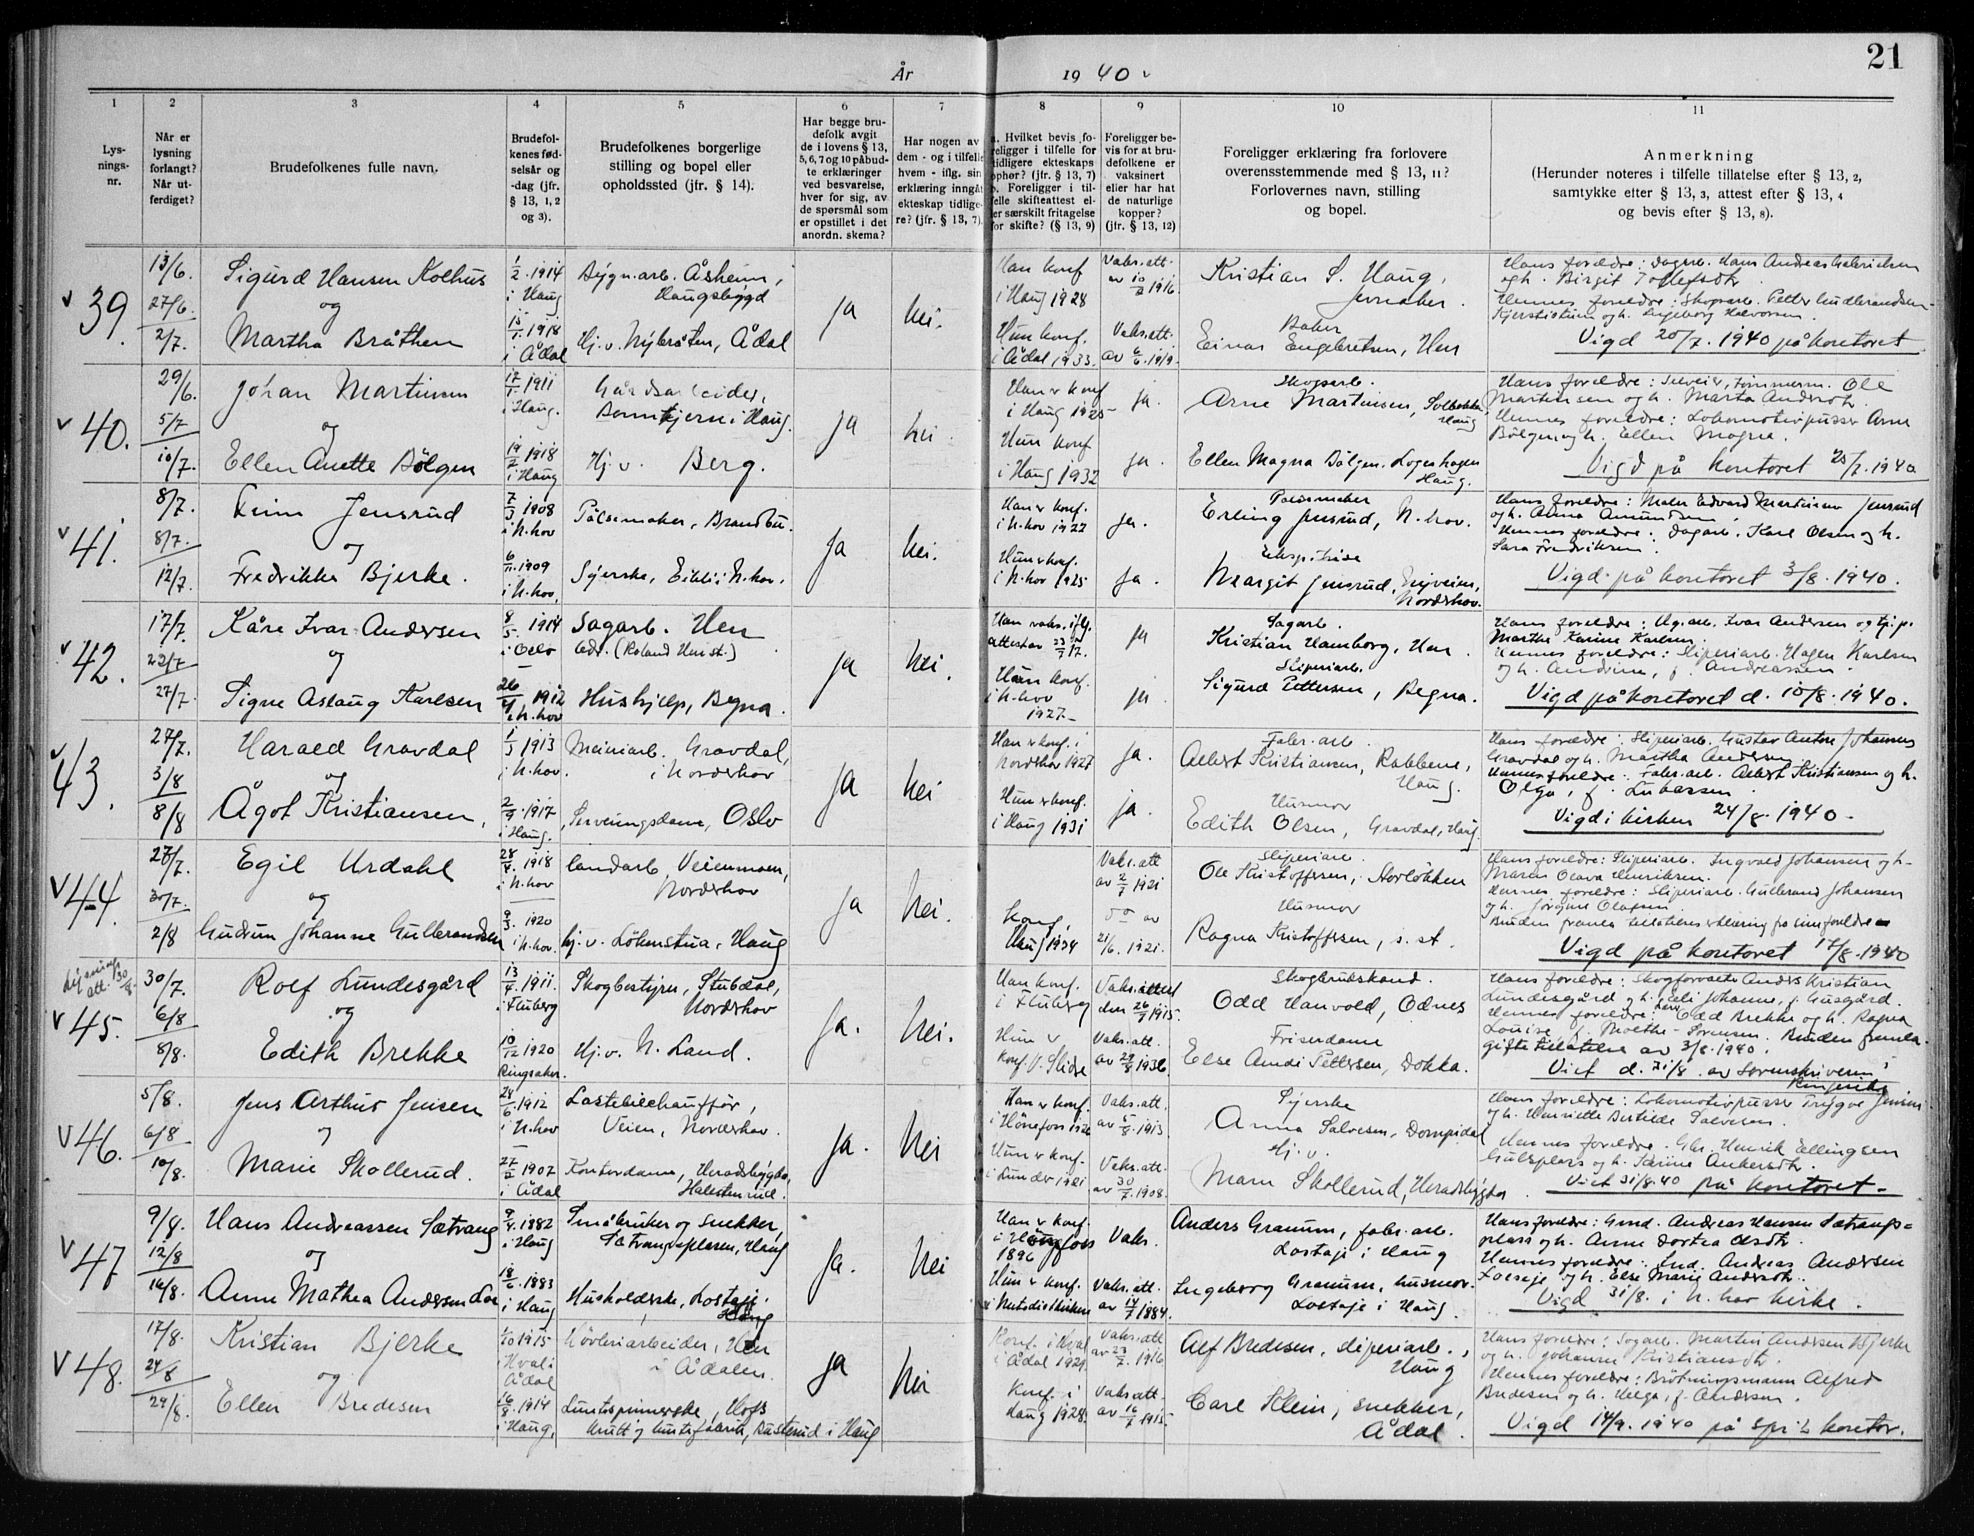 21
År 1940
1 2 3 4 5 6 7 8 9 10 11
Lys-
nings-
nr.
Når er
lysning
forlangt?
Når ut-
ferdiget?
Brudefolkenes fulle navn.
Brudefol-
kenes fød-
selsår og
-dag (jfr.
§ 13, 1, 2
og 3).
Brudefolkenes borgerlige
stilling og bopel eller
opholdssted (jfr. § 14).
Har begge bru-
defolk avgit
de i lovens § 13,
5, 6, 7 og 10 påbud-
te erklæringer
ved besvarelse,
hver for sig, av
de spørsmål som
er opstillet i det
anordn. skema?
Har nogen av
dem - og i tilfelle
hvem - iflg. sin
erklæring inngåt
ekteskap tidlige-
re? (jfr. § 13, 7).
a. Hvilket bevis fo-
religger i tilfelle for
tidligere ekteskaps
ophør? (§ 13, 7)
b. Foreligger i til-
felle skifteattest el-
ler særskilt fritagelse
for skifte? (§ 13, 9)
Foreligger be-
vis for at bru-
defolkene er
vaksinert
eller har hat
de naturlige
kopper?
(jfr. § 13, 12)
Foreligger erklæring fra forlovere
overensstemmende med § 13, 11?
Forlovernes navn, stilling
og bopel.
Anmerkning
(Herunder noteres i tilfelle tillatelse efter § 13, 2,
samtykke efter § 13, 3, attest efter § 13, 4
og bevis efter § 13, 8).
v 39.
13/6.
27/6
2/7.
Sigurd Hansen Kolhus
og
Martha Bråthen
1/2 1914
i Haug
15/1 1918
i Ådal
Bygn.arb. Åsheim,
Haugsbygd
Hj. v. Nybråten, Ådal
Ja
Nei.
Han konf
i Haug 1928
Hun konf.
i Ådal 1933.
Vaks.att.
1916.
Vaks.att.
av 6/6 1919.
Kristian S. Haug,
Jernaker.
Baker
Einar Engebretsen, Hen
Hans foreldre: dagarb. Hans Andreas Gabrielsen
og h. Birgit Tollefsdtr
Hennes foreldre: Skogsarb. Petter Gudbrandsen-
Kjerstistuen og h. Ingeborg Halvorsen.
Vigd 20/7. 1940 på kontoret
v 40.
29/6.
5/7
10/7.
Johan Martinsen
og
Ellen Anette Bølgen
17/1 1911
i Haug.
19/2 1918
i Haug
Gårdsarbeider,
Bonntjern i Haug.
Hj. v. Berg.
Ja
Nei
Han er konf
i Haug 1925-
Hun konf
i Haug 1932
ja.
ja.
Skogsarb.
Arne Martinsen, Solbakken
Haug
Ellen Magna Bølgen. Logenhagen
Haug.
Hans foreldre: Selveier, Tømmerm. Ole
Martinsen og h. Marta Andersdtr.
Hennes foreldre: Lokomotivpusser Arne
Bølgen og h. Ellen Magna.
Vigd på kontoret 25/7. 1940
v 41.
8/7.
8/7.
12/7.
Finn Jensrud
og
Fredrikke Bjerke.
7/3 1908
i N.hov
6/11. 1909
i N.hov,
Pølsemaker, Brandbu.
Syerske, Eikli i N.hov.
Ja
Nei.
Han er konf.
i N.hov 1922
Hun er konf.
i N.hov 1925
ja.
ja.
Pølsemaker
Erling Jensrud, N.hov.
Ekspeditrise
Margit Jensrud,
Norderhov.
Hans foreldre: Maler Edvard Martinsen Jensrud
og h. Anna Amundsen.
Hennes foreldre: Dagarb. Karl Olsen og h.
Sara Fredriksen.
Vigd på kontoret 3/8. 1940.
v 42.
17/7.
22/7
27/7.
Kåre Ivar Andersen
og
Signe Aslaug Karlsen
8/5. 1914
i Oslo
26/4 1912
i N.hov
Sagarb. Hen
adr. (Roland Hen st.)
Hushjelp, Begna.
Ja
Nei.
Han vaks. iflg.
attest av 17.
Hun konf.
i N.hov
1927-
ja
ja.
Sagarb.
Kristian Hamborg, Hen.
Sliperiarb.
Sigurd Pettersen, Begna.
Hans foreldre: Ivar Andersen og
Marthe Karine Karlsen.
Hennes foreldre: Sliperiarb. Hagen Karlsen
og h. Andrine, f. Andreassen.
Vigd på kontoret d. 10/8. 1940.
v 43.
27/7.
3/8
8/8
Harald Gravdal
og
Ågot Kristiansen,
1913
i N.hov.
1917
i Haug.
Meieriarb. Gravdal,
i Norderhov
Serveringsdame, Oslo
Ja
Nei
Han er konf. i
Norderhov 1927
Hun er konf.
i Haug 1931
Ja.
ja.
Fabr.arb.
Albert Kristiansen, Rabbene,
Haug.
Husmor
Edith Olsen, Gravdal, Haug
Hans foreldre: Sliperiarb. Gustav Anton Johansen
Gravdal og h. Martha Andersen
Hennes foreldre: Fabr.arb. Albert Kristiansen og h.
Olga, f.
Vigd i kirken 24/8. 1940-
v 44.
27/7.
30/7.
2/8
Egil Urdahl
og
Gudrun Johanne Gulbrandsen
28/4. 1918
i N.hov
9/3. 1920
i N.hov.
landarb. Veienmoen,
Norderhov
hj. v. Løkenstua, Haug
Ja
Nei.
Konf.
Haug 1934
Vaks.att
av 2/7 1921
do av
21/6. 1921.
Sliperiarb.
Ole Kristoffersen,
Husmor
Ragna Kristoffersen, s. st.
Hans foreldre: Sliperiarb. Ingvald Johansen og h-
Maren Olava Henriksen.
Hennes foreldre: Sliperiarb. Gulbrand Johansen
og h. Jørgine Olausen.
Vigd på kontoret 17/8. 1940
Lysnings
att. 30/8.
v 45.
30/7.
6/8
8/8.
Rolf Lundesgård
og
Edith Brekke
13/4. 1911.
i Fluberg
10/12 1920
Ringsaker.
Skogbestyrer, Stubdal,
Norderhov
Hj. v. N. Land.
Ja.
Nei.
Han konf.
i Fluberg
Hun er
konf. V. Slidre
Vaks.attest
den 26/7 1915.
Vaks.att.
av 29/8 1936.
Skogbrukskand.
Odd Hanvold, Odnes
Friserdame
Else Amdi Pettersen, Dokka.
Hans foreldre: Skogforvalter Anders Kristian
Lundesgård og h. Eli Johanne, f. Gusgård.
Hennes foreldre: Odd Brekke og h. Ragna
Louise, f. Moethe-Sørensen. Bruden fremla
giftetillatelse av 3/8. 1940.
Viet d. 31/8. av sorenskriveren i
Ringerike
v 46.
5/8.
6/8
10/8.
Jens Arthur Jensen
og
Marie Skollerud.
28/6. 1912
i N.hov
27/2 1907
i Ådal
Lastebilchauffør,
Veien, Norderhov.
Kontordame, Heradsbygda,
Halstenrud.
Ja.
Nei
Han er konf.
i Hönefoss 1926
Hun er konf.
i Lunder 1921
Vaks.att.
av 5/8 1913
Vaks.att.
av 30/7. 1908.
Syerske
Anna Salvesen,
Hj. v.
Maren Skollerud, Heradsbygda.
Hans foreldre: Lokomotivpusser Trygve Jensen
og h. Henriette Bertilde Salvesen.
Hennes foreldre. Gbr. Henrik Ellingsen
Gulsplass og h. Karine Ankersdtr.
Viet 31/8. 40 på kontoret-
v 47
9/8.
12/8
16/8.
Hans Andreassen Sætrang
og
Anne Mathea Andersen
9/4. 1882
i Haug
18/6. 1883
i Haug
Småbruker og snekker,
Sætrangsplassen, Haug
Husholderske, Lostaje.
Haug
Ja.
Nei
Han er konf.
1896
Hun er konf.
i Metodistkirken
Vaks.
Vaks.att.
av 14/7 1884.
Anders Granum, fabr.arb.
Lostaje i Haug
Ingeborg Granum, husmor.
Lostaje i Haug.
Hans foreldre: Gmd. Andreas Hansen Sætrangs-
plass og h. Anne Dortea Olsdtr.
Hennes foreldre: Ind. Andreas Andersen
og h. Else Marie Andersdtr.
Vigd 31/8. i N. hov kirke.
v 48.
17/8.
24/8
29/8.
Kristian Bjerke
og
Ellen Bredesen
1/10 1915
i Hval i
Ådal
16/8. 1914
i Haug.
Høvleriarbeider, Hen
i Ådalen.
Luntespinnerske, Hofs
krutt og luntefabrik, Busterud i Haug
Ja
Nei
Konf. i Hval
i Ådal 1929.
Konf. i
Haug 1928.
Vaks.att
av 23/2. 1916
Vaks.att.
av 16/7 1915.
Alf Bredesen, sliperiarb.,
Haug
Carl Klein, snekker,
Ådal.
Hans foreldre: Sagarb. Martin Andersen Bjerke
og h. Johanne Kristiansdtr.
Hennes foreldre: Brøtningsmann Alfred
Bredesen og h. Helga, f. Andersen.
Vigd 14/9. 1940 på spr.s kontor.